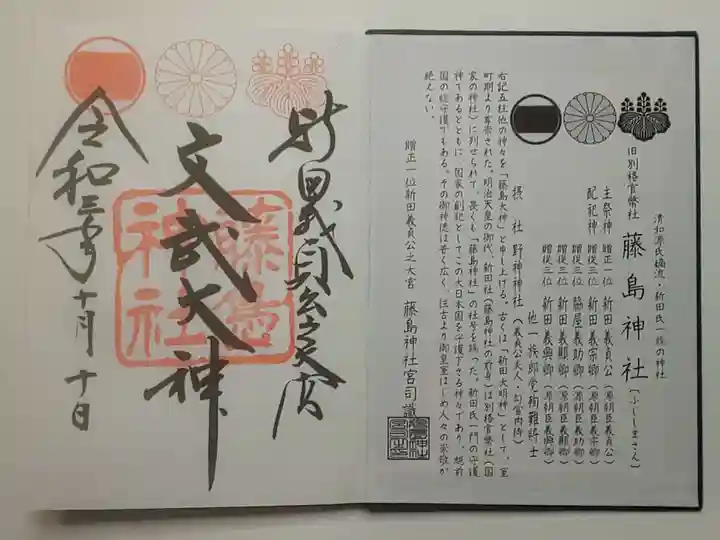 清和源氏嫡流・新田氏一族の神社
旧別格官幣社 藤島神社(ふじしまさん)
主祭神 贈正一位 新田義貞公(源朝臣義貞公)
配祀神 贈従三位 新田義宗卿(源朝臣義宗卿)
贈従三位 脇屋義助卿(源朝臣義助卿)
贈従三位 新田義顯卿(源朝臣義顯卿)
贈従三位 新田義興卿(源朝臣義興卿)
他一族郎党殉難将士
摂社 野神神社(義貞公夫人・勾當内侍)
右記五柱他の神々を「藤島大神」と申し上げる。古くは「新田大明神」として、室
町期より尊崇された。明治天皇の御代、新田社(藤島神社の前身)は別格官幣社(国
家の神社)に列せられて、畏くも「藤島神社」の社号を賜った。新田氏一門の守護
神であるとともに、国家の創祀としてこの大日本国を守護下さる神々であり、越前
国の総守護でもある。その御神徳は普く広く、往古より御皇室はじめ人々の崇敬が
絶えない。
贈正一位新田義貞公之大宮 藤島神社宮司謹
新田義貞公之大宮
文武大神
藤島
神社
令和三年十月十日